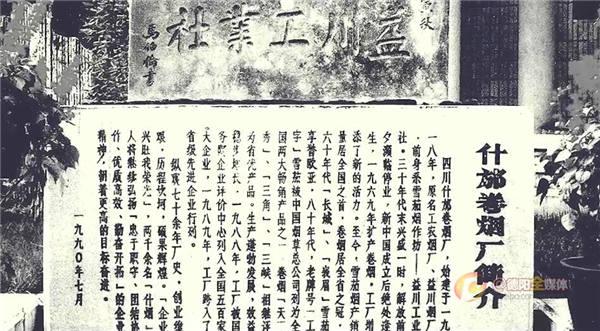 益川工業社
什邡卷烟厂简介
四川什邡卷烟厂，始建于一九
一八年，原名工农烟厂、益川烟厂
，前身系雪茄烟作坊——益川工业
社。三十年代末兴盛一时，解放前
夕濒临停业，新中国成立后绝处逢
生，一九六九年扩产卷烟，工厂增
添了新的活力。至今，雪茄烟产销
量居全国之首，卷烟居全省之冠，
六十年代「长城」、「峨眉」雪茄
享誉欧亚，八十年代，老牌号「工
字」雪茄被中国烟草总公司列为全
国两大畅销产品之一，卷烟「天下
秀」、「三角」、「三峡」相继评
为省优产品。生产蓬勃发展，效益
稳步增长，一九八八年，工厂被国
务院企业评价中心列入全国五百家
大企业，一九八九年，工厂跨入了
省级先进企业行列。
纵观七十余年厂史，创业维
艰，历程坎坷，硕果辉煌。「企业
兴旺我荣光」，两千余名「什烟」
人将继续弘扬「忠于职守、团结协
作、优质高效、勤奋开拓」的企业
精神，朝着更高的目标奋进。
一九九〇年七月
@德阳全媒体